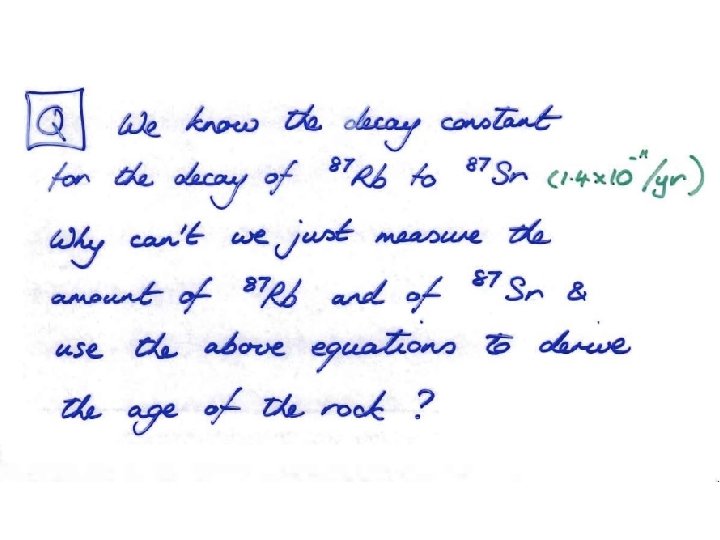 Q We know the decay constant
for the decay of ⁸⁷Rb to ⁸⁷Sr (1.4x10⁻¹¹/yr)
Why can't we just measure the
amount of ⁸⁷Rb and of ⁸⁷Sr &
use the above equations to derive
the age of the rock?